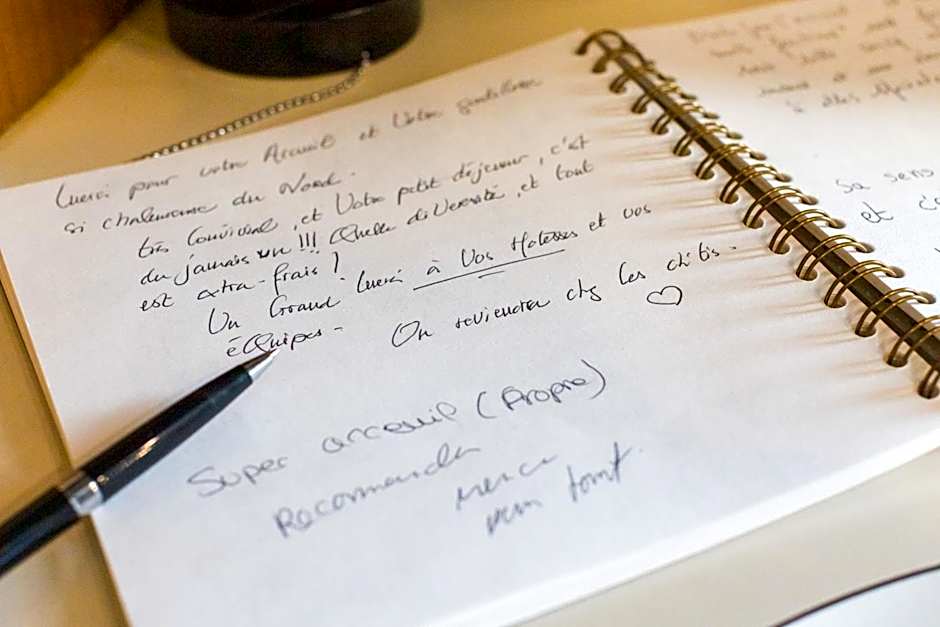 Merci pour votre Accueil et Votre gentillesse
si chaleureuse du Nord.
très Convivial, et Votre petit déjeuner, c'est
du jamais vu !!! Quelle diversité, et tout
est extra-frais !
Un Grand Merci à Vos Hotesses et vos
éQuipes - On reviendra chez les ch'tis. ♡
Super acceuil (Propre)
Recommande
merci
pour tout.
Sa sens
et